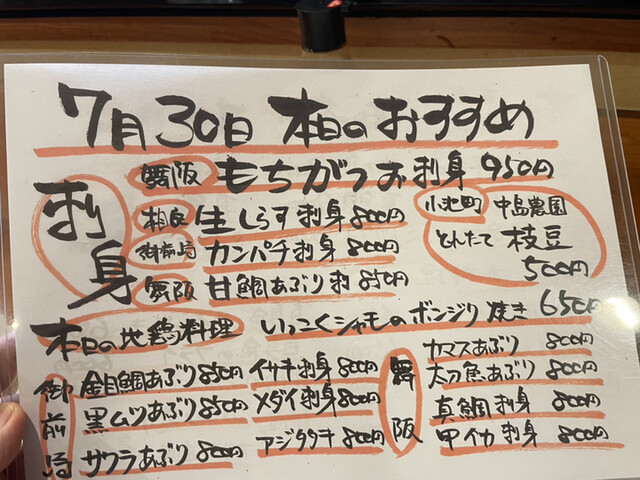 7月30日 本日のおすすめ
刺身
舞阪 もちがつお刺身 950円
相良 生しらす刺身 800円
御前崎 カンパチ刺身 800円
舞阪 甘鯛あぶり刺 850円
小池町 中島農園
とれたて 枝豆
500円
本日の地鶏料理 いっこくシャモのボンジリ焼き 650円
御前崎
金目鯛あぶり 850円
黒ムツあぶり 850円
サワラあぶり 800円
イサキ刺身 800円
メダイ刺身 800円
アジタタキ 800円
舞阪
カマスあぶり 800円
太刀魚あぶり 800円
真鯛刺身 800円
甲イカ刺身 800円